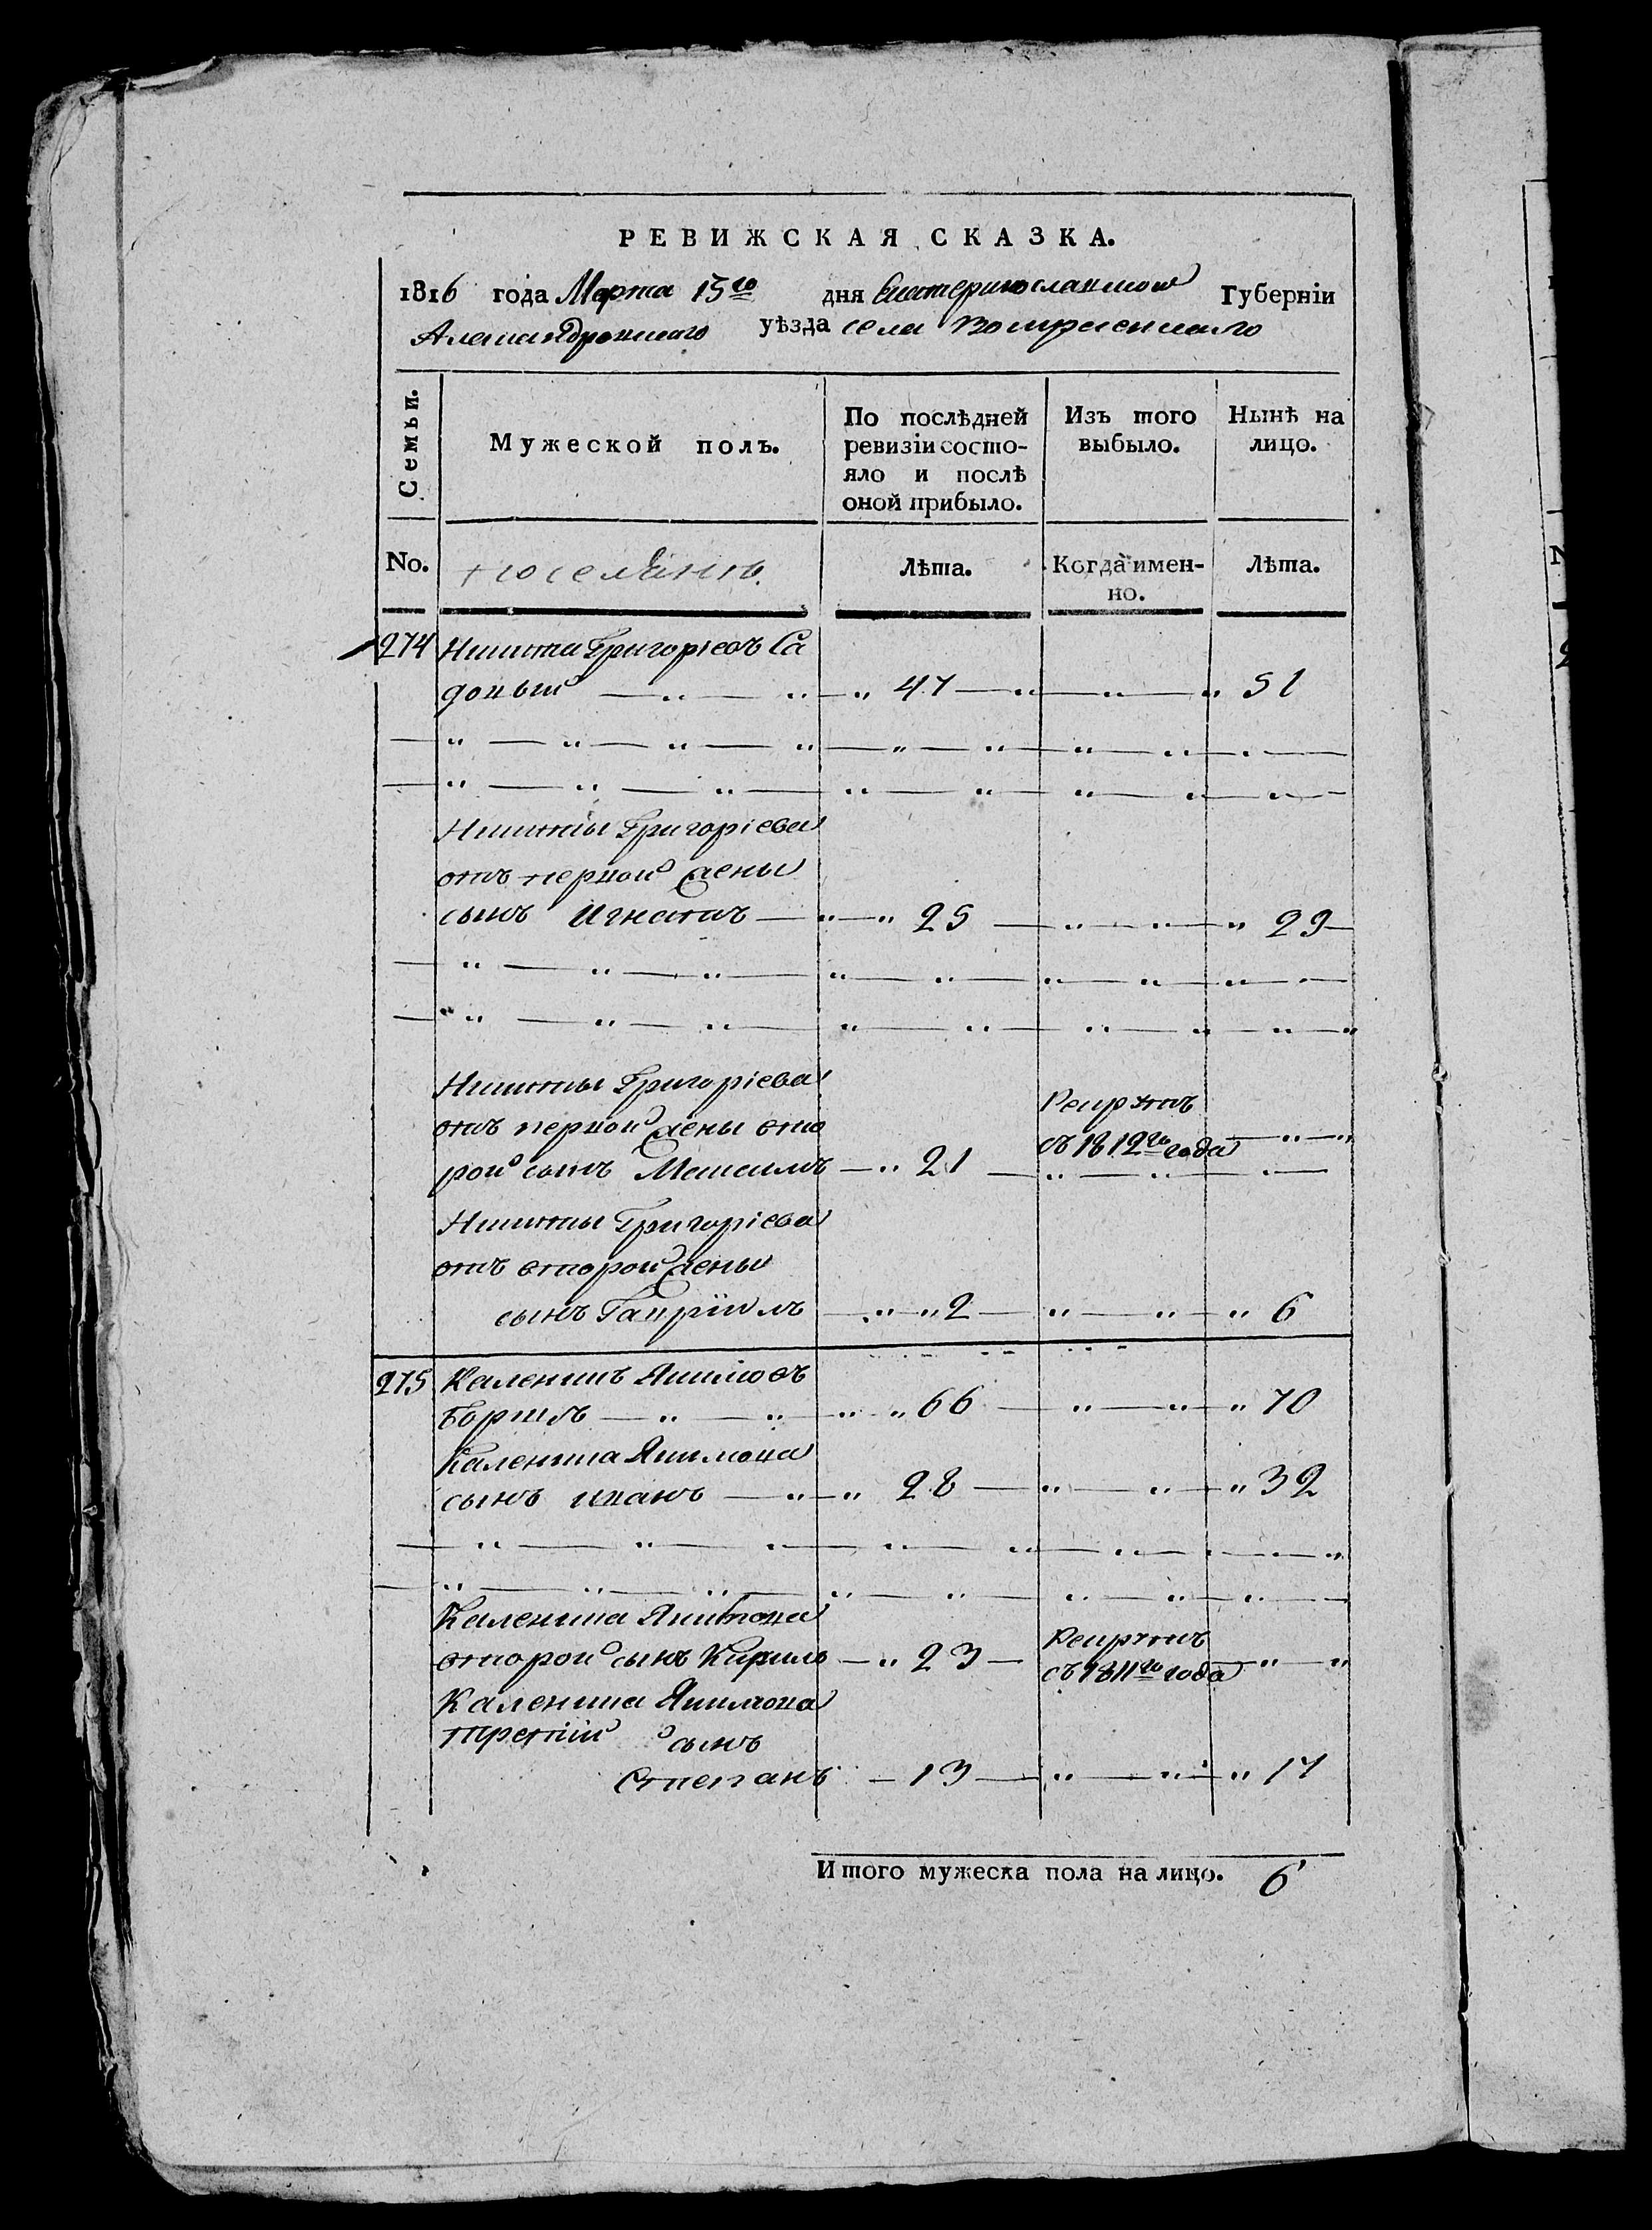 РЕВИЖСКАЯ СКАЗКА.
1816 года Марта 15го дня Екатеринославской Губерніи
Александровскаго уѣзда села Воскресенскаго
Семьи. Мужеской полъ. По послѣдней ревизіи состояло и послѣ оной прибыло. Изъ того выбыло. Нынѣ на лицо.
No. поселянъ. Лѣта. Когда именно. Лѣта.
274 Никита Григорієвъ Са
довый — " — " — " 47 — " — " — " 51
Никиты Григорієва
отъ первой жены
сынъ Игнатъ — " — " 25 — " — " — " 29
Никиты Григорієва
отъ первой жены вто
рой сынъ Максимъ — " 21 — Рекрутъ съ 1812го года — " — "
Никиты Григорієва
отъ второй жены
сынъ Гавріилъ — " — " 2 — " — " — " 6
275 Каленикъ Якимовъ
— " — " — " — " 66 — " — " — " 70
Каленика Якимова
сынъ иванъ — " — " 28 — " — " — " 32
Каленика Якимова
второй сынъ Кирило — " 23 — Рекрутъ съ 1811го года — " — "
Каленика Якимова
третій сынъ
Степанъ — 13 — " — " — " 17
Итого мужеска пола на лицо. 6